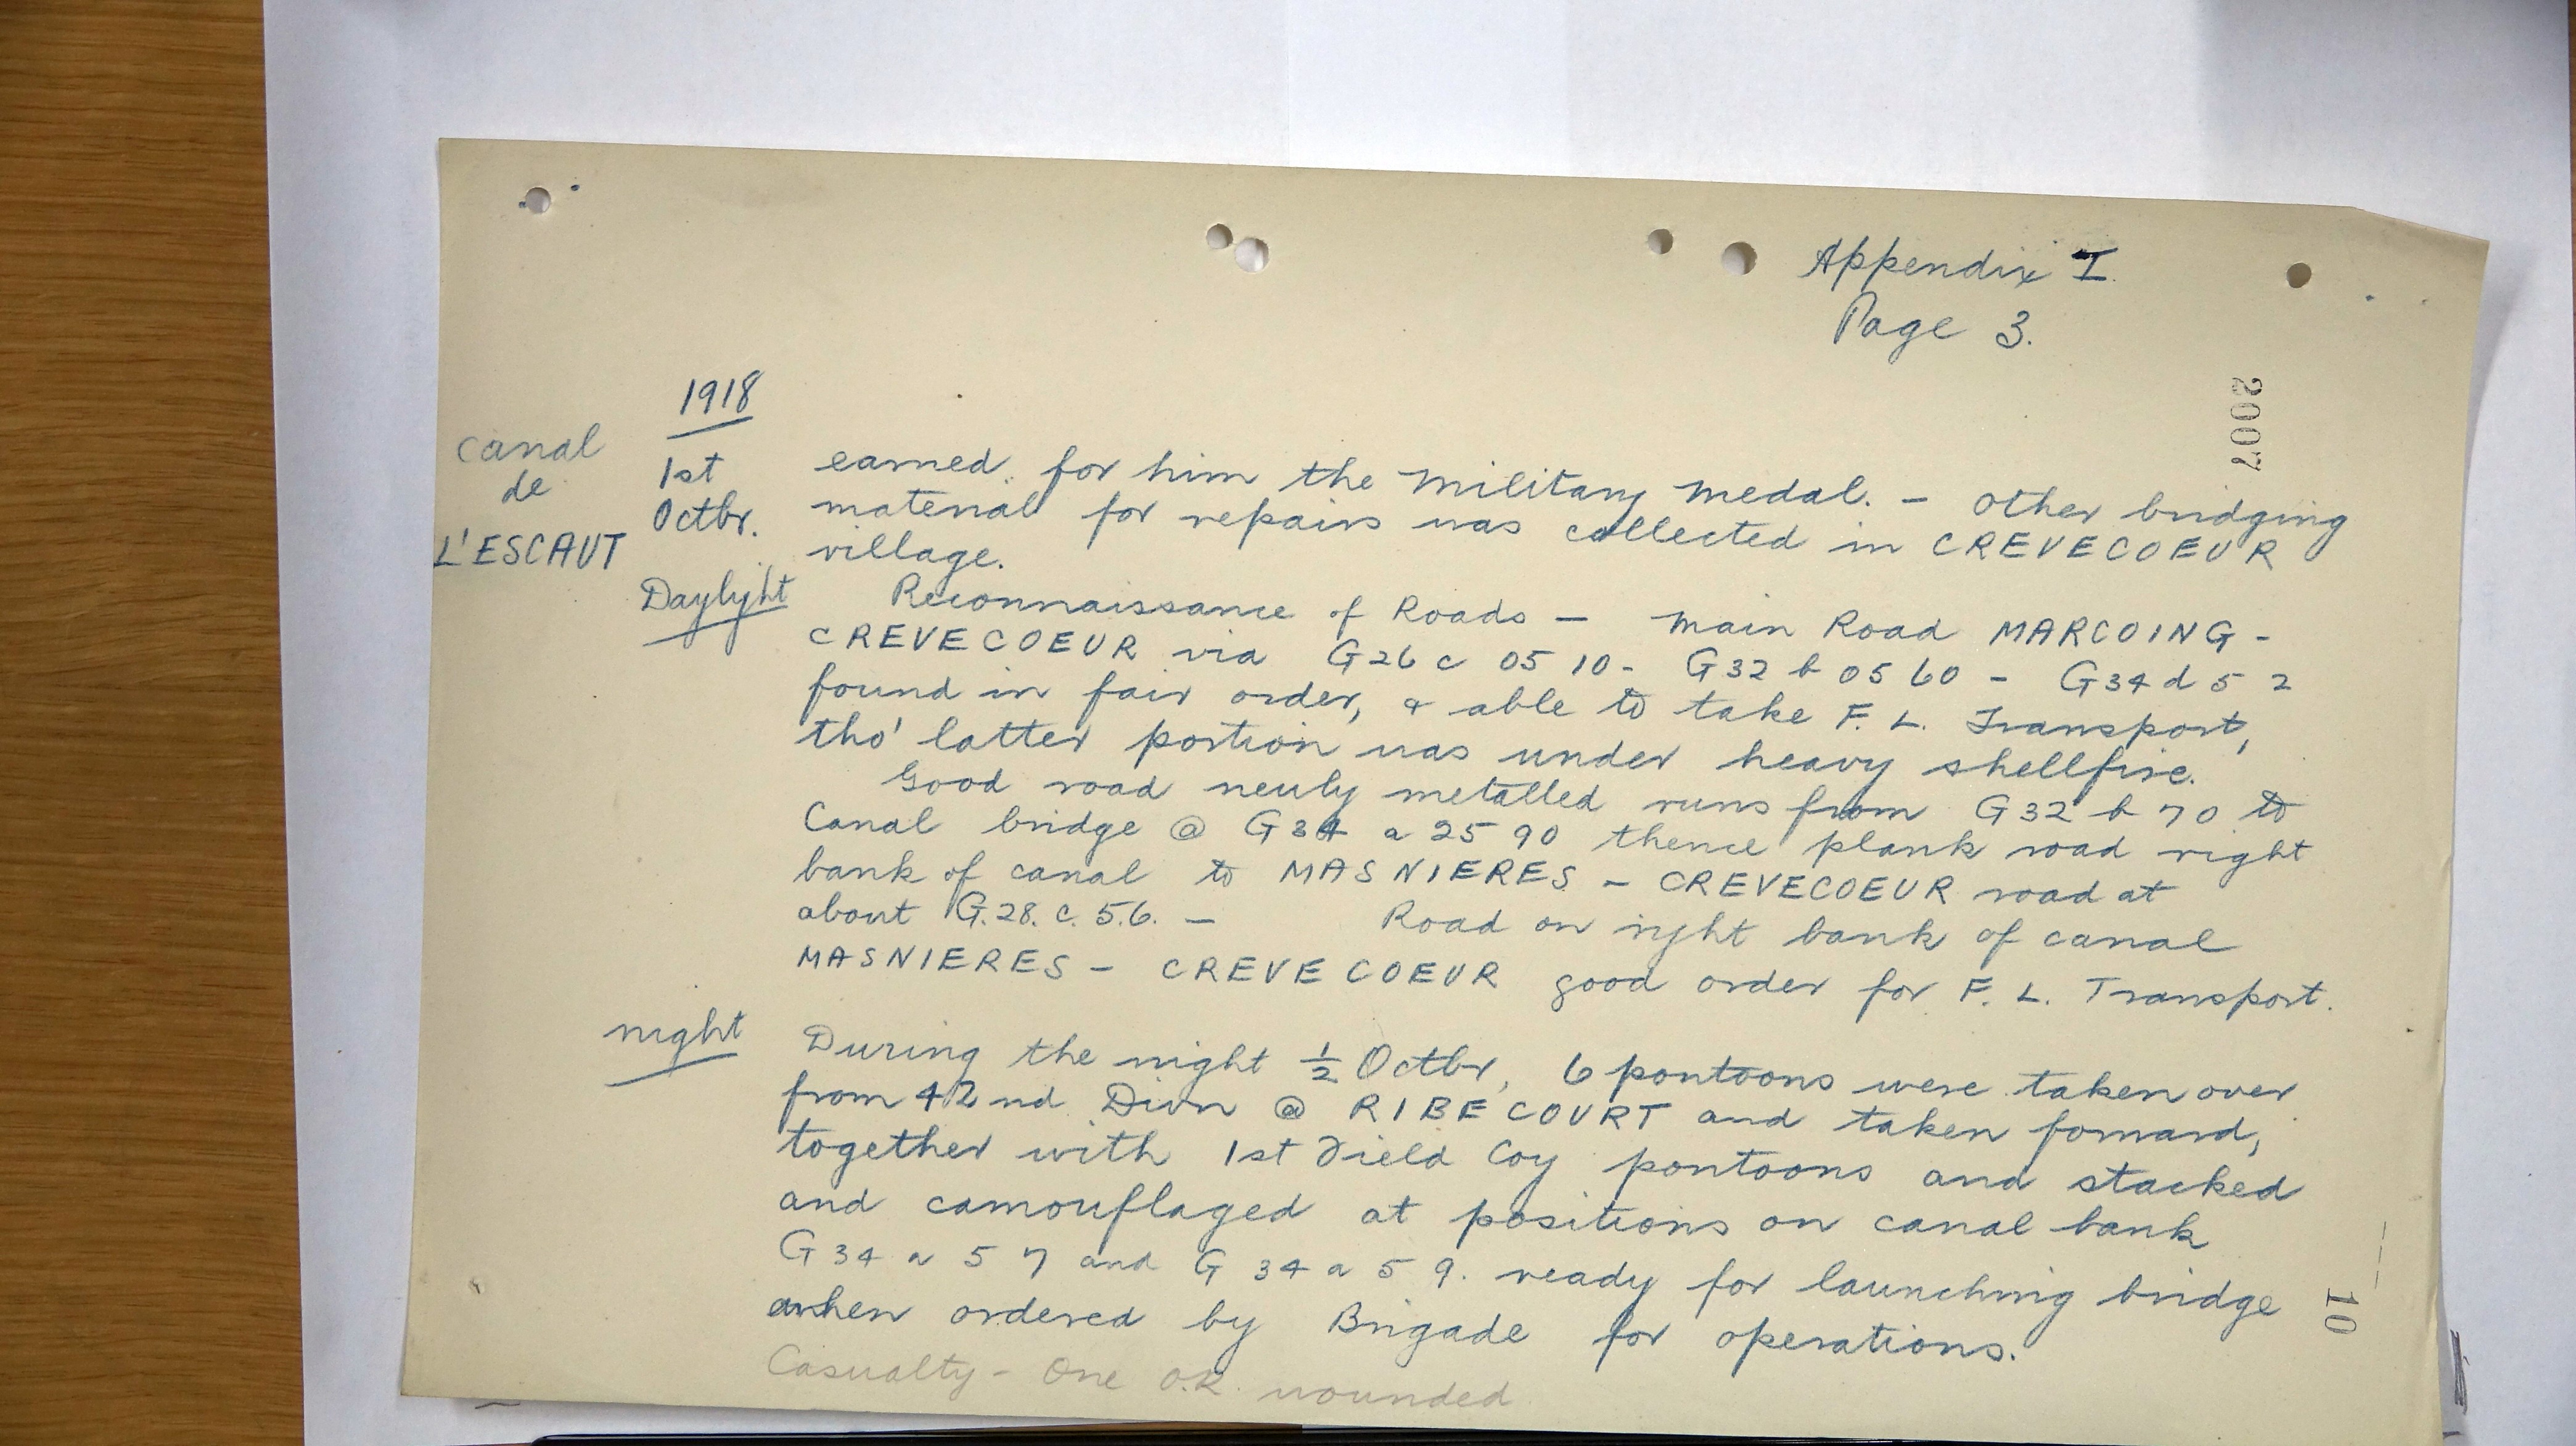 Appendix I.
Page 3.
2007
1918
Canal
de
L'ESCAUT
1st
Octbr.
earned for him the Military Medal. - Other bridging
material for repairs was collected in CREVECOEUR
village.
Daylight
Reconnaissance of Roads - Main Road MARCOING -
CREVECOEUR via G26 c 05 10 - G32 b 05 60 - G34 d 5 2
found in fair order, & able to take F. L. Transport,
tho' latter portion was under heavy shellfire.
Good road newly metalled runs from G32 b 70 to
Canal bridge @ G34 a 25 90 thence plank road right
bank of canal to MASNIERES - CREVECOEUR road at
about G.28. c. 5.6. - Road on right bank of canal
MASNIERES - CREVECOEUR good order for F. L. Transport.
night
During the night 1/2 Octbr, 6 pontoons were taken over
from 42nd Divn @ RIBECOURT and taken forward,
together with 1st Field Coy pontoons and stacked
and camouflaged at positions on canal bank
G 34 a 5 7 and G 34 a 5 9. ready for launching bridge
when ordered by Brigade for operations.
Casualty - One O.R. wounded
10